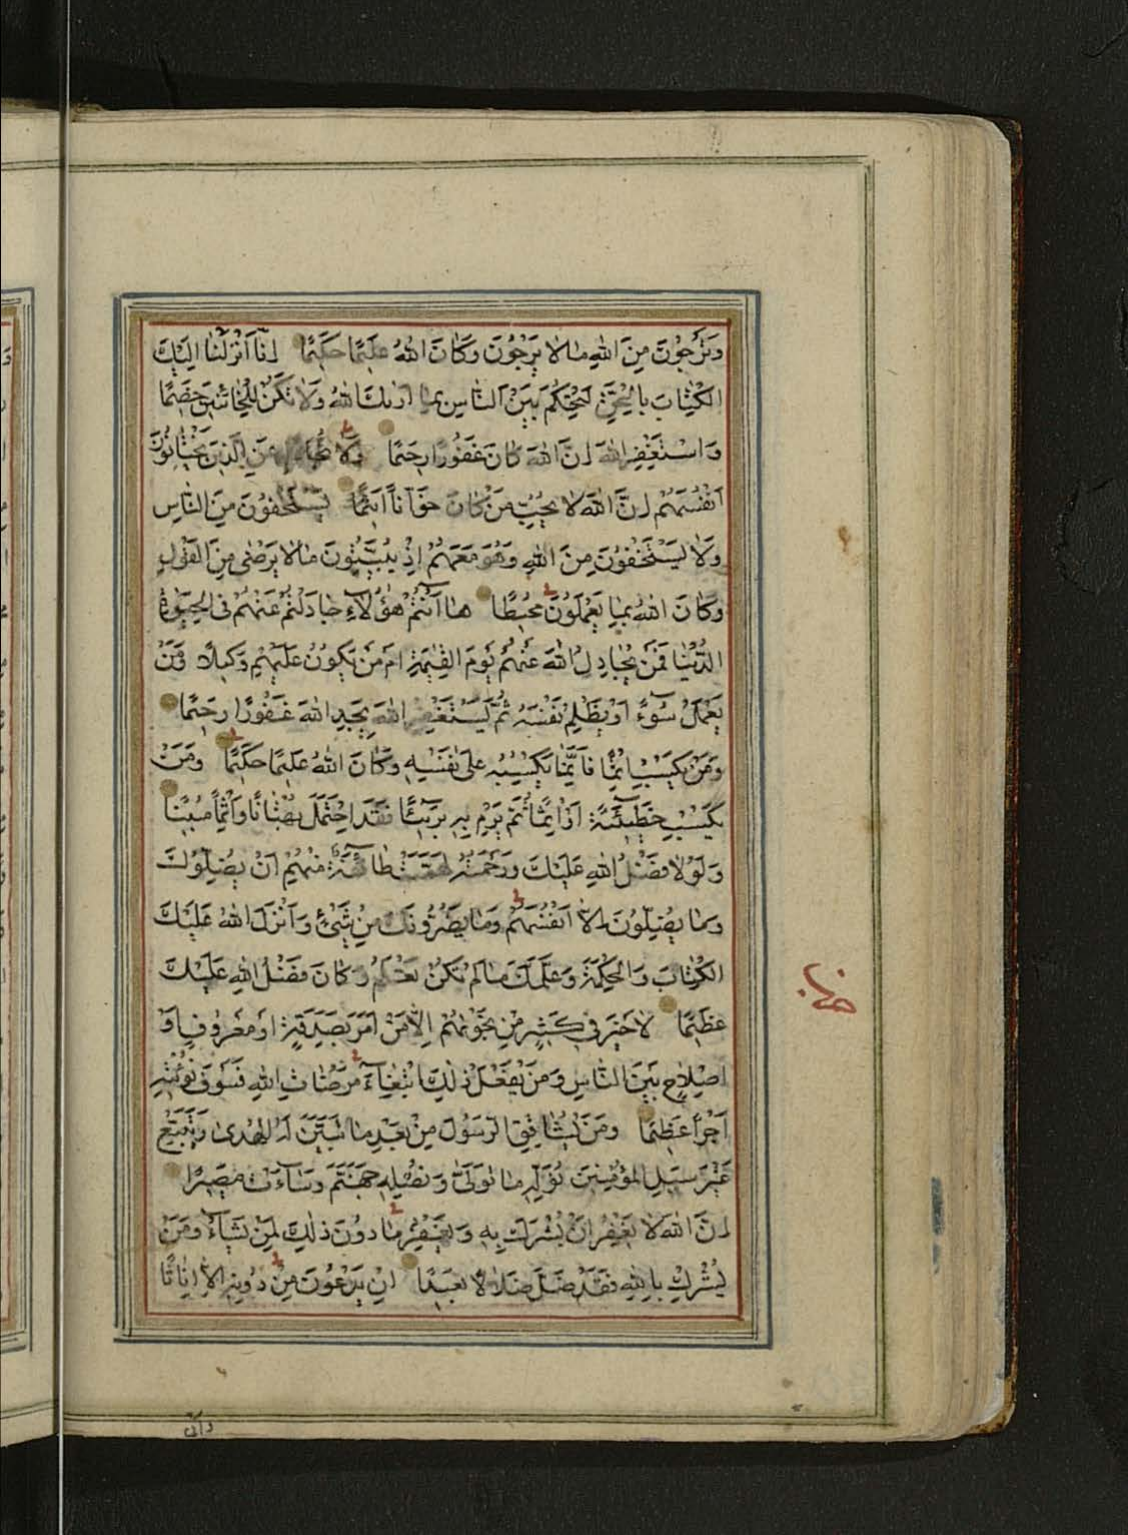 وَتَرْجُونَ مِنَ اللهِ مَا لَا يَرْجُونَ وَكَانَ اللهُ عَلِيمًا حَكِيمًا اِنَّا اَنْزَلْنَا اِلَيْكَ
الْكِتَابَ بِالْحَقِّ لِتَحْكُمَ بَيْنَ النَّاسِ بِمَا اَرٰيكَ اللهُ وَلَا تَكُنْ لِلْخَائِنِينَ خَصِيمًا
وَاسْتَغْفِرِ اللهَ اِنَّ اللهَ كَانَ غَفُورًا رَحِيمًا وَلَا تُجَادِلْ عَنِ الَّذِينَ يَخْتَانُونَ
اَنْفُسَهُمْ اِنَّ اللهَ لَا يُحِبُّ مَنْ كَانَ خَوَّانًا اَثِيمًا يَسْتَخْفُونَ مِنَ النَّاسِ
وَلَا يَسْتَخْفُونَ مِنَ اللهِ وَهُوَ مَعَهُمْ اِذْ يُبَيِّتُونَ مَا لَا يَرْضٰى مِنَ الْقَوْلِ
وَكَانَ اللهُ بِمَا يَعْمَلُونَ مُحِيطًا هَا اَنْتُمْ هٰؤُلَاءِ جَادَلْتُمْ عَنْهُمْ فِى الْحَيٰوةِ
الدُّنْيَا فَمَنْ يُجَادِلُ اللهَ عَنْهُمْ يَوْمَ الْقِيٰمَةِ اَمْ مَنْ يَكُونُ عَلَيْهِمْ وَكِيلًا وَمَنْ
يَعْمَلْ سُوءًا اَوْ يَظْلِمْ نَفْسَهُ ثُمَّ يَسْتَغْفِرِ اللهَ يَجِدِ اللهَ غَفُورًا رَحِيمًا
وَمَنْ يَكْسِبْ اِثْمًا فَاِنَّمَا يَكْسِبُهُ عَلٰى نَفْسِهِ وَكَانَ اللهُ عَلِيمًا حَكِيمًا وَمَنْ
يَكْسِبْ خَطِيئَةً اَوْ اِثْمًا ثُمَّ يَرْمِ بِهِ بَرِيئًا فَقَدِ احْتَمَلَ بُهْتَانًا وَاِثْمًا مُبِينًا
وَلَوْلَا فَضْلُ اللهِ عَلَيْكَ وَرَحْمَتُهُ لَهَمَّتْ طَائِفَةٌ مِنْهُمْ اَنْ يُضِلُّوكَ
وَمَا يُضِلُّونَ اِلَّا اَنْفُسَهُمْ وَمَا يَضُرُّونَكَ مِنْ شَىْءٍ وَاَنْزَلَ اللهُ عَلَيْكَ
الْكِتَابَ وَالْحِكْمَةَ وَعَلَّمَكَ مَا لَمْ تَكُنْ تَعْلَمُ وَكَانَ فَضْلُ اللهِ عَلَيْكَ
عَظِيمًا لَا خَيْرَ فِى كَثِيرٍ مِنْ نَجْوٰيهُمْ اِلَّا مَنْ اَمَرَ بِصَدَقَةٍ اَوْ مَعْرُوفٍ اَوْ
اِصْلَاحٍ بَيْنَ النَّاسِ وَمَنْ يَفْعَلْ ذٰلِكَ ابْتِغَاءَ مَرْضَاتِ اللهِ فَسَوْفَ نُؤْتِيهِ
اَجْرًا عَظِيمًا وَمَنْ يُشَاقِقِ الرَّسُولَ مِنْ بَعْدِ مَا تَبَيَّنَ لَهُ الْهُدٰى وَيَتَّبِعْ
غَيْرَ سَبِيلِ الْمُؤْمِنِينَ نُوَلِّهِ مَا تَوَلّٰى وَنُصْلِهِ جَهَنَّمَ وَسَاءَتْ مَصِيرًا
اِنَّ اللهَ لَا يَغْفِرُ اَنْ يُشْرَكَ بِهِ وَيَغْفِرُ مَا دُونَ ذٰلِكَ لِمَنْ يَشَاءُ وَمَنْ
يُشْرِكْ بِاللهِ فَقَدْ ضَلَّ ضَلَالًا بَعِيدًا اِنْ يَدْعُونَ مِنْ دُونِهِ اِلَّا اِنَاثًا
وان